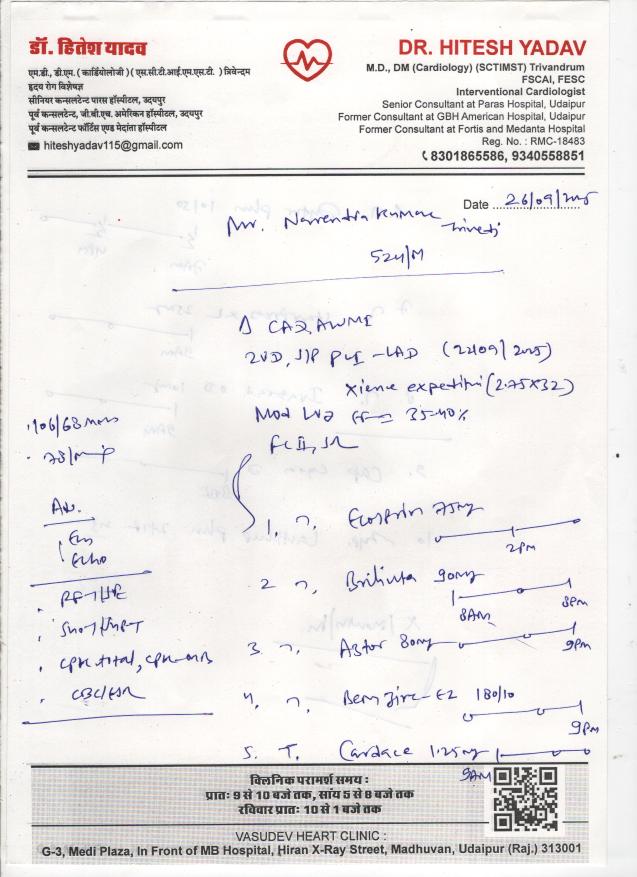 डॉ. हितेश यादव
एम.डी., डी.एम. ( कार्डियोलोजी ) ( एस.सी.टी.आई.एम.एस.टी. ) त्रिवेन्द्रम
हृदय रोग विशेषज्ञ
सीनियर कन्सलटेन्ट पारस हॉस्पीटल, उदयपुर
पूर्व कन्सलटेन्ट, जी.बी.एच. अमेरिकन हॉस्पीटल, उदयपुर
पूर्व कन्सलटेन्ट फोर्टिस एण्ड मेदांता हॉस्पीटल
hiteshyadav115@gmail.com
DR. HITESH YADAV
M.D., DM (Cardiology) (SCTIMST) Trivandrum
FSCAI, FESC
Interventional Cardiologist
Senior Consultant at Paras Hospital, Udaipur
Former Consultant at GBH American Hospital, Udaipur
Former Consultant at Fortis and Medanta Hospital
Reg. No. : RMC-18483
8301865586, 9340558851
Date 26/09/2025
Mr. Narendra Kumar Trivedi
52y/M
Δ CAD, AWMI
2VD, S/P PCI - LAD (22/09/2025)
Xience (2.75X32)
Mod LVD EF = 35-40%
FC II, SR
106/68 mm
78/min
Adv.
Echo
RFT/
SGOT/SGPT
CPK total, CPK-MB
CBC/ESR
1. T. Ecosprin 75mg
2PM
2. T. Brilinta 90mg
8AM 8PM
3. T. Aztor 80mg
9PM
4. T. 180/10
9PM
5. T. Cardace 1.25mg
9AM
क्लिनिक परामर्श समय :
प्रातः 9 से 10 बजे तक, सांय 5 से 8 बजे तक
रविवार प्रातः 10 से 1 बजे तक
VASUDEV HEART CLINIC :
G-3, Medi Plaza, In Front of MB Hospital, Hiran X-Ray Street, Madhuvan, Udaipur (Raj.) 313001